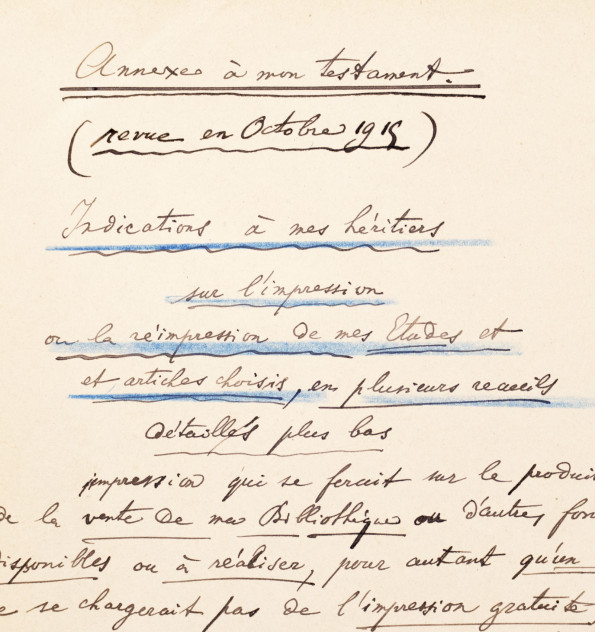 Annexe à mon testament.
(revue en Octobre 1915)
Indications à mes héritiers
sur l'impression
ou la réimpression de mes Etudes et
et articles choisis, en plusieurs recueils
détaillés plus bas
impression qui se ferait sur le produi
de la vente de ma Bibliothèque ou d'autres fon
disponibles ou à réaliser, pour autant qu'un
e se chargerait pas de l'impression gratuite,